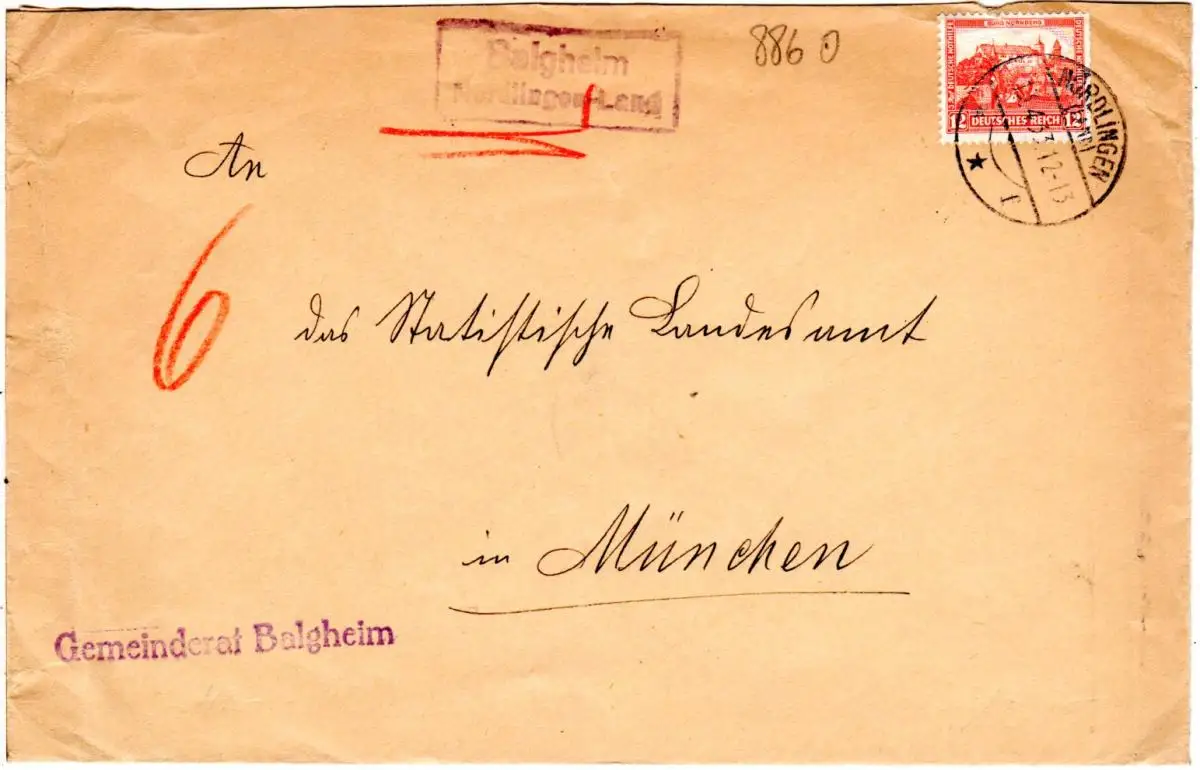 Balgheim
Nördlingen-Land
886 O
BURG NÜRNBERG
DEUTSCHE NOTHILFE
12 DEUTSCHES REICH 12
NÖRDLINGEN
12-13
An
6
das Statistische Landesamt
in München
Gemeinderat Balgheim